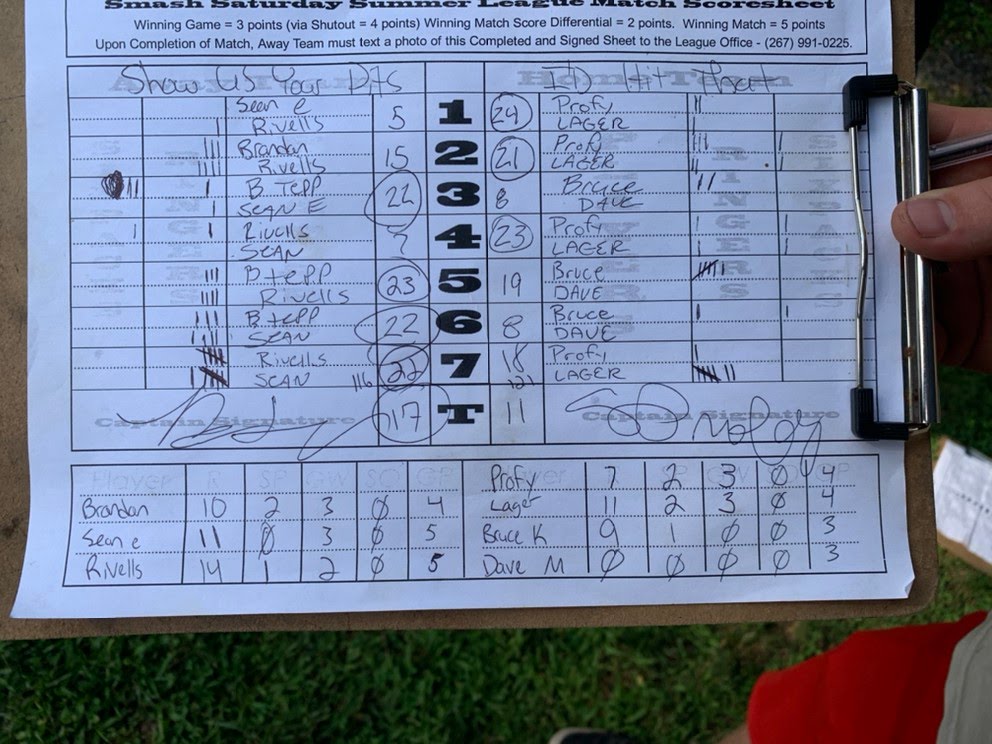 Smash Saturday Summer League Match Scoresheet
Winning Game = 3 points (via Shutout = 4 points) Winning Match Score Differential = 2 points. Winning Match = 5 points
Upon Completion of Match, Away Team must text a photo of this Completed and Signed Sheet to the League Office - (267) 991-0225.
Show US Your D Home Team I'D Hit That
Sean e 5 1 24 Profy
Rivells LAGER
Brandan 15 2 21 Profy
Rivells LAGER
B. TEPP 22 3 8 Bruce
SEAN E DAVE
Rivells 7 4 23 Profy
SEAN LAGER
B tepp 23 5 19 Bruce
Rivells DAVE
B tepp 22 6 8 Bruce
SEAN DAVE
Rivells 22 7 18 Profy
SEAN 116 121 LAGER
Captain Signature 117 T 11 Captain Signature
Player R SP GW SO GP Profy 7 2 3 0 4
Brandan 10 2 3 0 4 Lager 11 2 3 0 4
Sean e 11 0 3 0 5 Bruce K 9 1 0 0 3
Rivells 14 1 2 0 5 Dave M 0 0 0 0 3